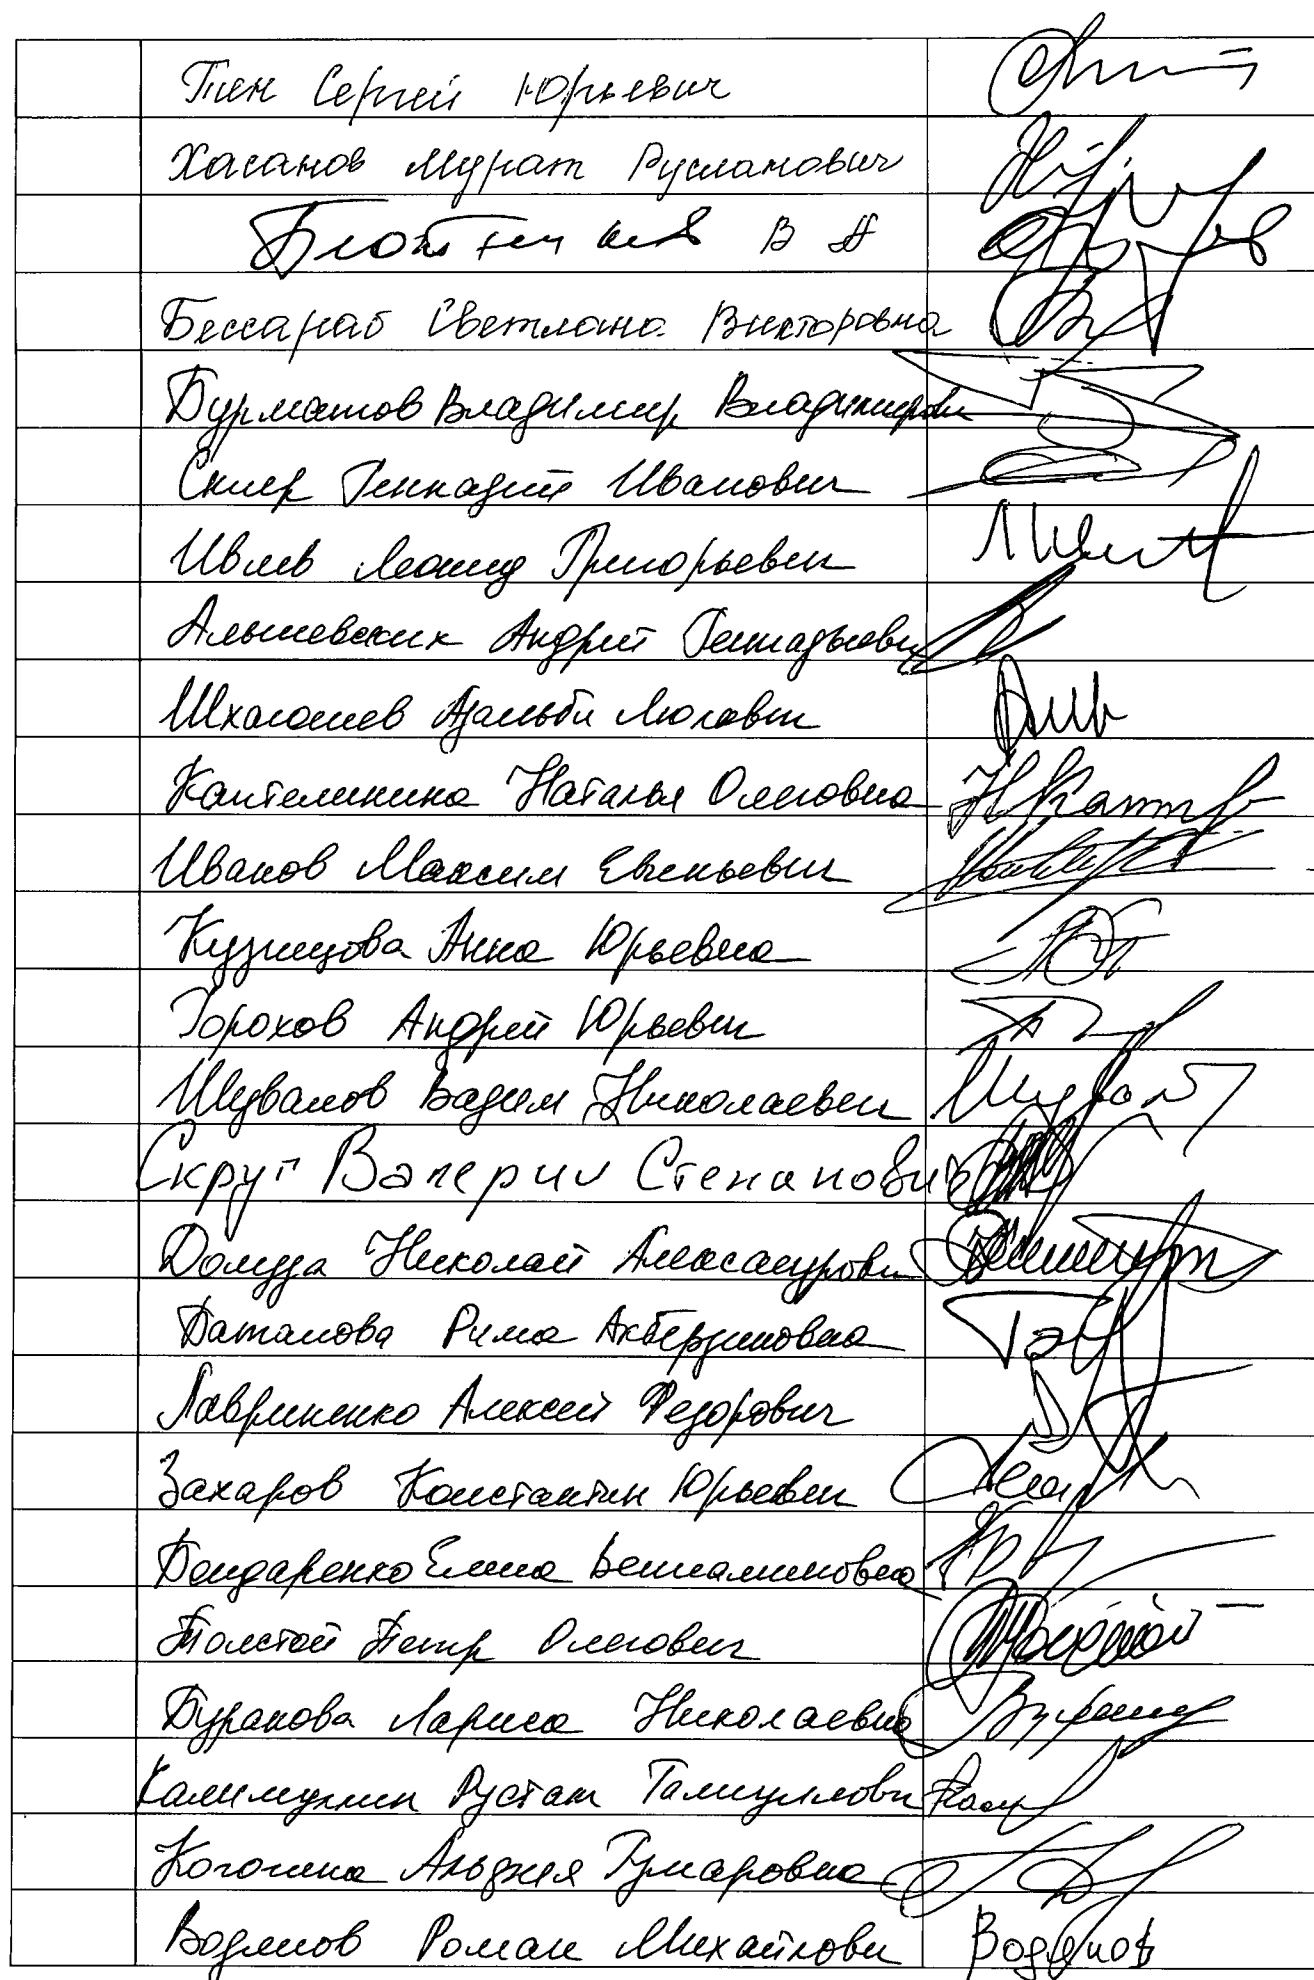 Тен Сергей Юрьевич
Хасанов Мурат Русланович
В А
Бессараб Светлана Викторовна
Бурматов Владимир Владимирович
Скляр Геннадий Иванович
Ивлев Леонид Григорьевич
Альшевских Андрей Геннадьевич
Шхагошев Адальби Люлевич
Каптелинина Наталья Олеговна
Иванов Максим Евгеньевич
Кузнецова Анна Юрьевна
Горохов Андрей Юрьевич
Шувалов Вадим Николаевич
Скруг Валерий Степанович
Долуда Николай Александрович
Баталова Рима Акбердиновна
Лавриненко Алексей Федорович
Захаров Константин Юрьевич
Бондаренко Елена Вениаминовна
Толстой Петр Олегович
Буранова Лариса Николаевна
Калимуллин Рустам Гамиуллович
Когогина Альфия Гумаровна
Водянов Роман Михайлович Водянов